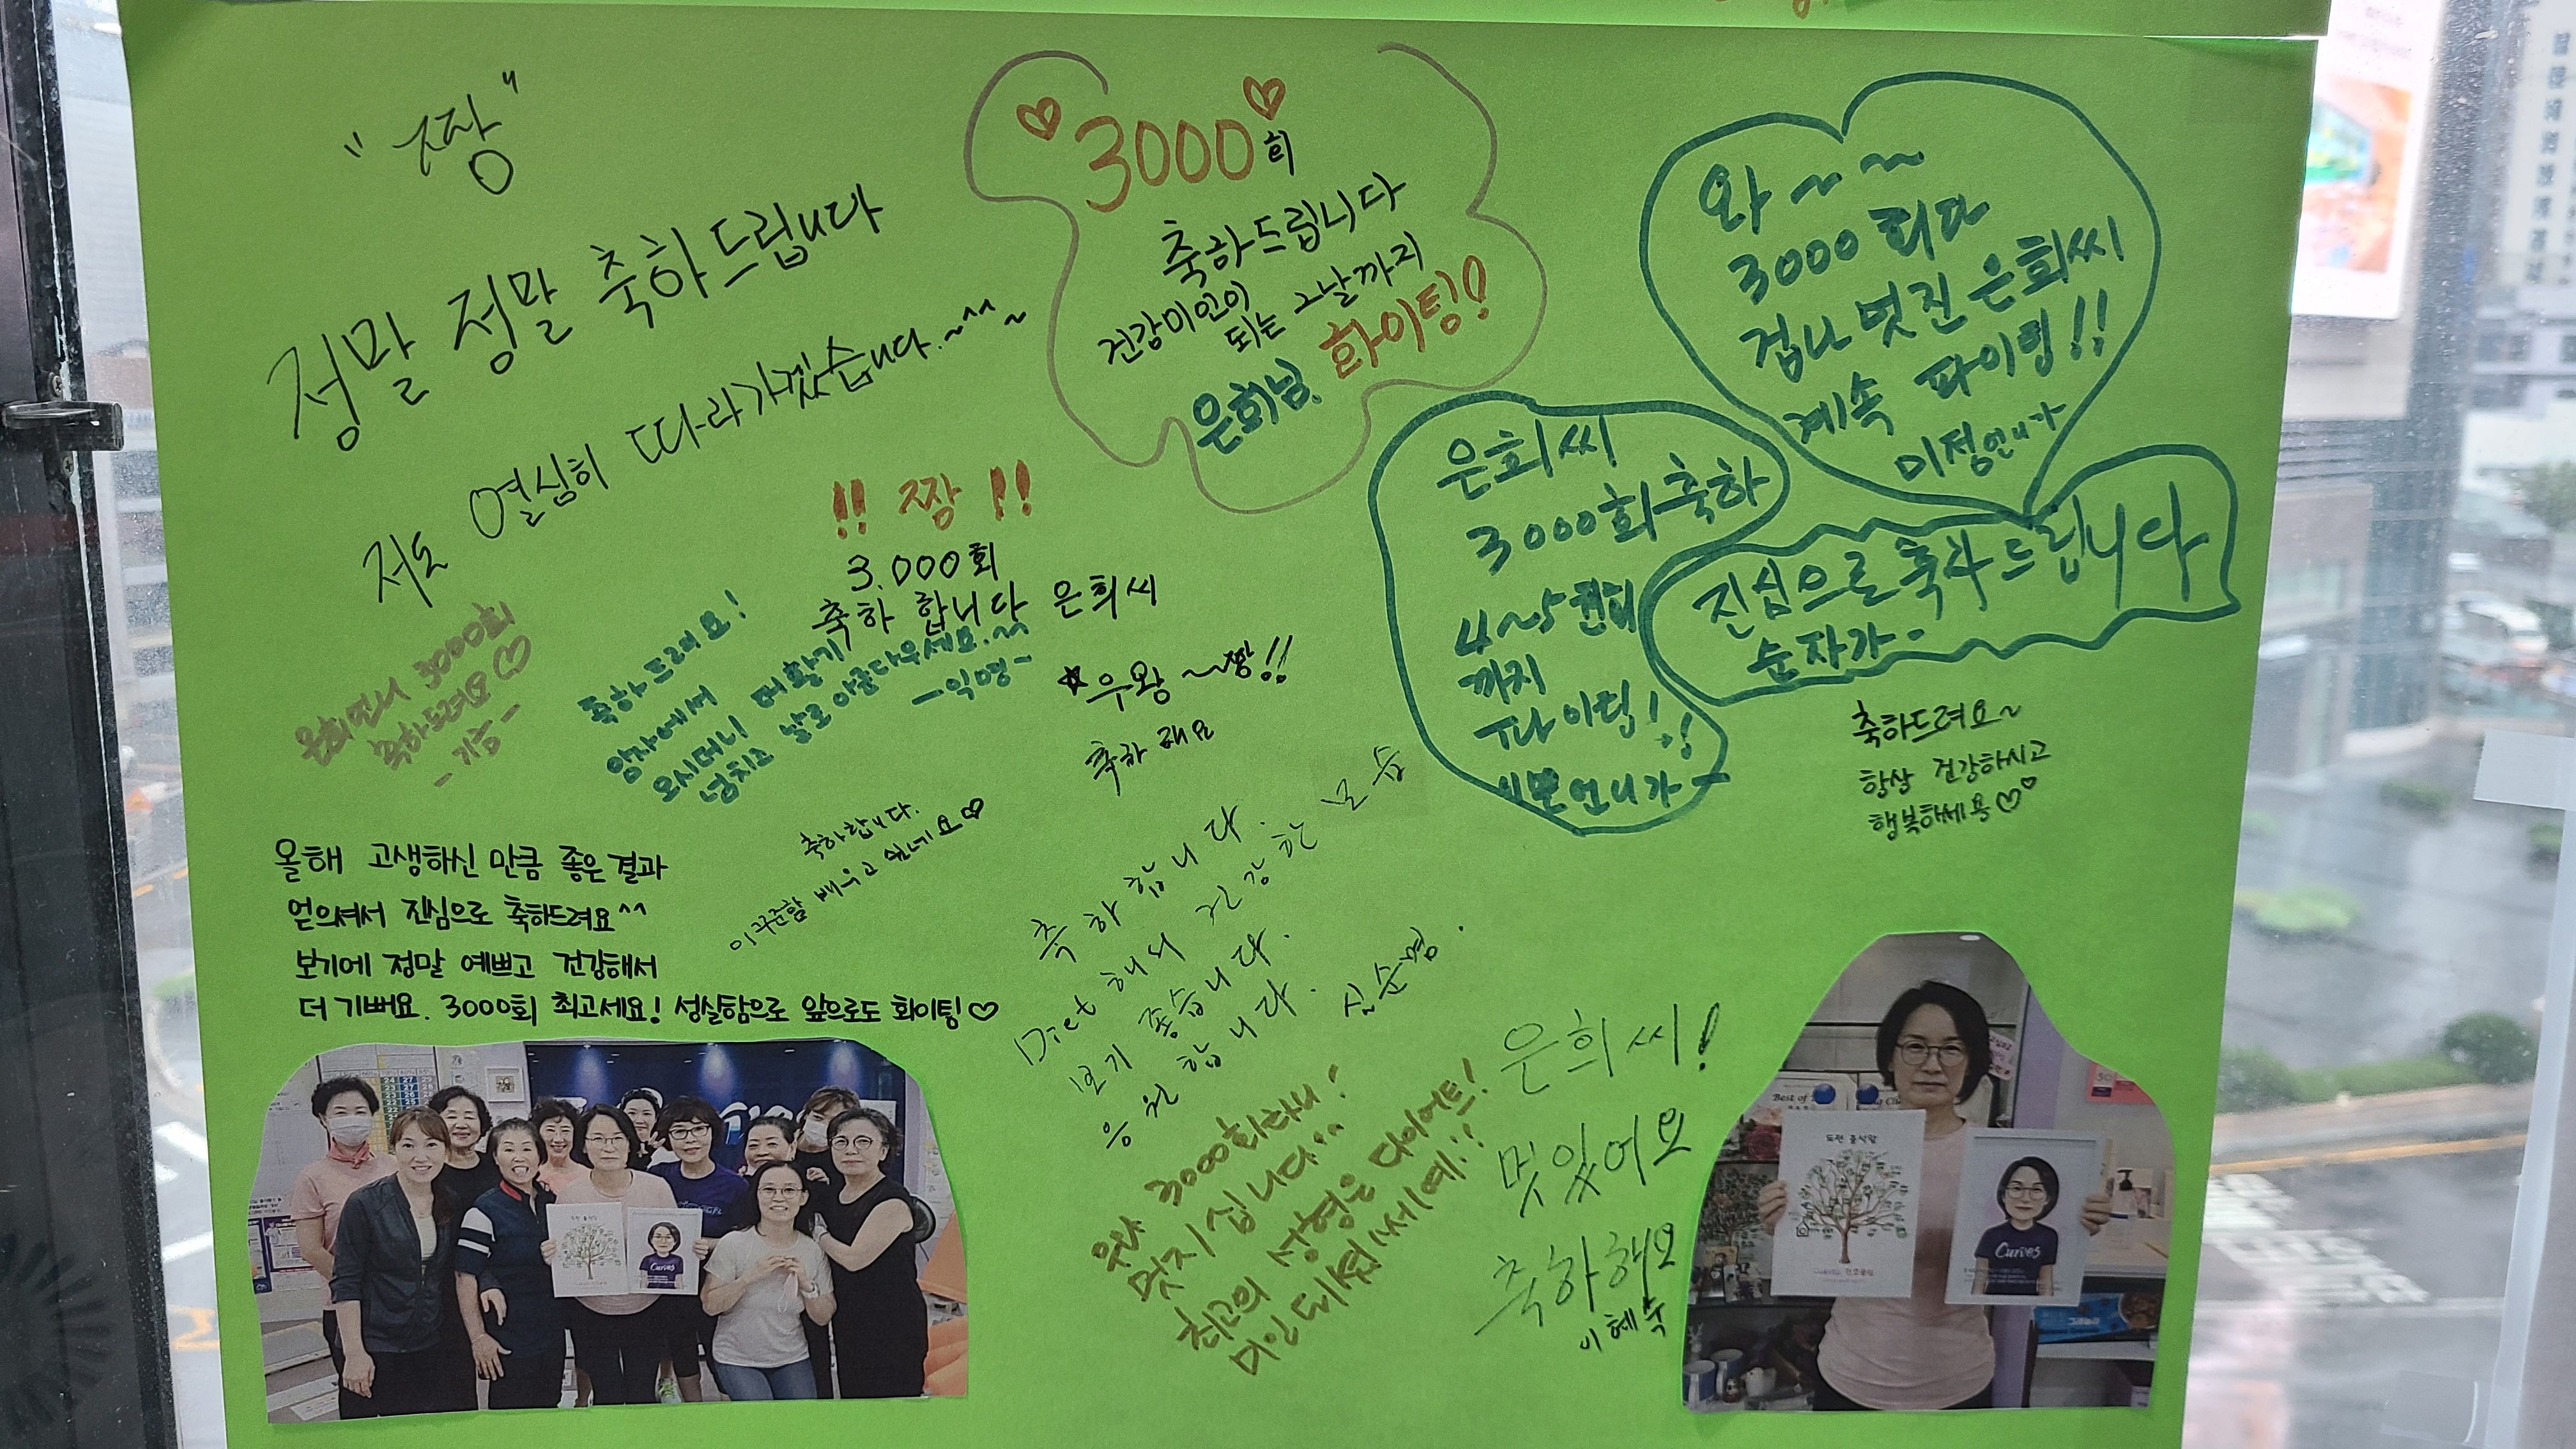 "짱"
정말 정말 축하드립니다
저도 열심히 따라가겠습니다.~^^~
3000회
축하드립니다
건강미인이
되는 그날까지
은희님. 화이팅!
와~~
3000회다
겁나 멋진 은희씨
계속 파이팅!!
미정언니가
은희씨
3000회축하
까지
파이팅!!
언니가
진심으로축하드립니다
순자가-
!! 짱 !!
3.000회
축하 합니다 은희씨
은희언니 3000회
축하드려요♡
축하드려요!
-익명-
☆우왕~짱!!
축하해요
축하드려요~
항상 건강하시고
행복하세용♡♡
올해 고생하신 만큼 좋은 결과
얻으셔서 진심으로 축하드려요^^
보기에 정말 예쁘고 건강해서
더 기뻐요. 3000회 최고세요! 성실함으로 앞으로도 화이팅♡
축하합니다.
이 꾸준함 배우고 싶네요♡
축하합니다.
Diet 해서 건강한 모습
보기 좋습니다.
응원합니다. 심순명.
우와 3000회라니!
멋지십니다^^
최고의 성형은 다이어트!
은희씨!
멋있어요
축하해요
이혜숙
Curves
Best of
Curves